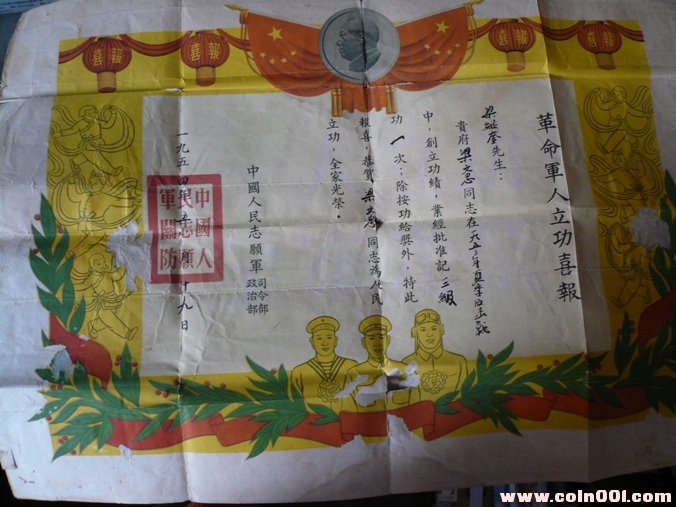 喜報
喜報
喜報
喜報
革命軍人立功喜報
梁継奎先生：
貴府梁文同志在五三年夏季反击战
中，創立功績，業經批准記三級
功一次；除按功給獎外，特此
報喜，恭賀梁文同志為人民
立功，全家光榮。
中國人民志願軍司令部
政治部
一九五四年月十九日
中國人
民志願
軍關防
www.coin001.com